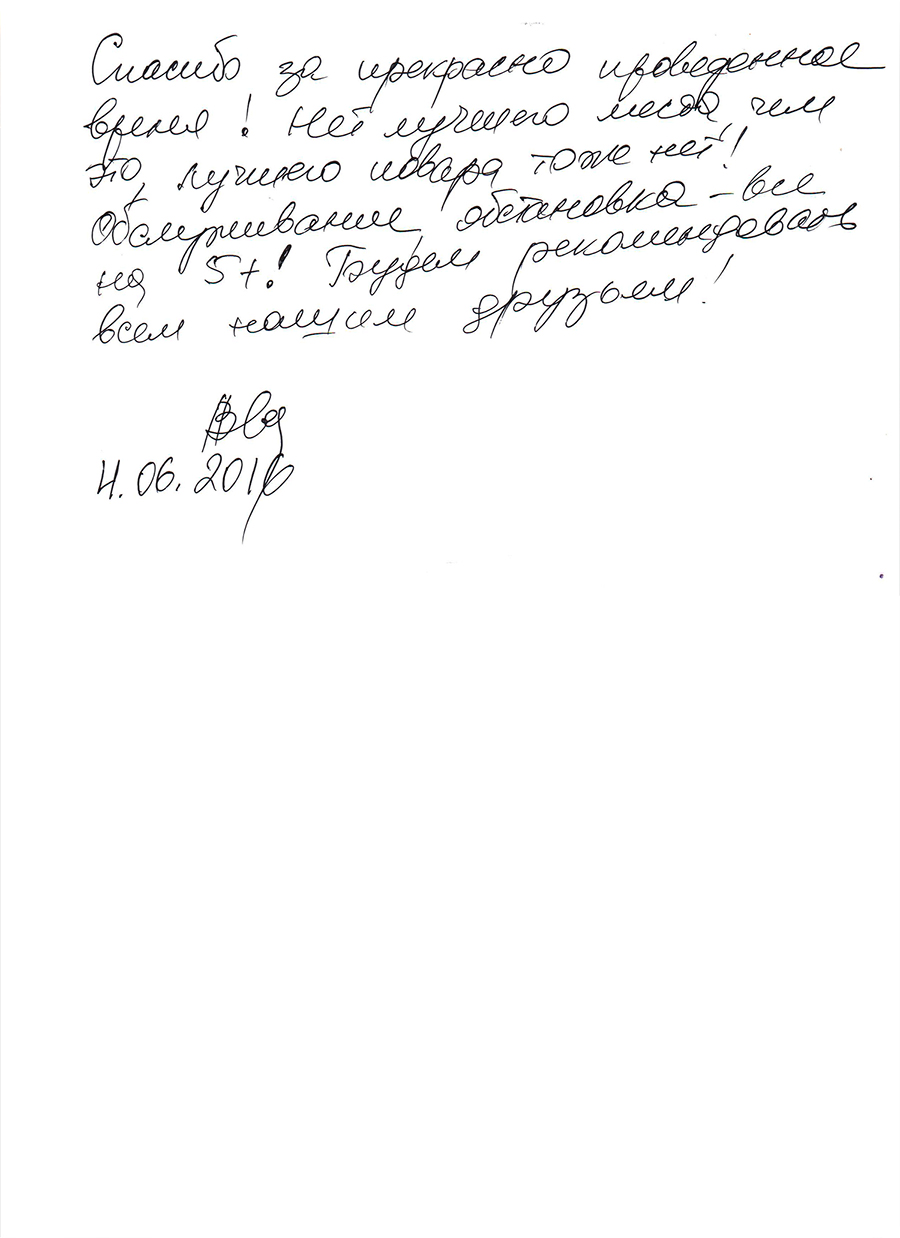 Спасибо за прекрасно проведенное
время! Нет лучшего места, чем
это, лучшего повара тоже нет!
Обслуживание, обстановка – все
на 5+! Будем рекомендовать
всем нашим друзьям!
4.06.2016